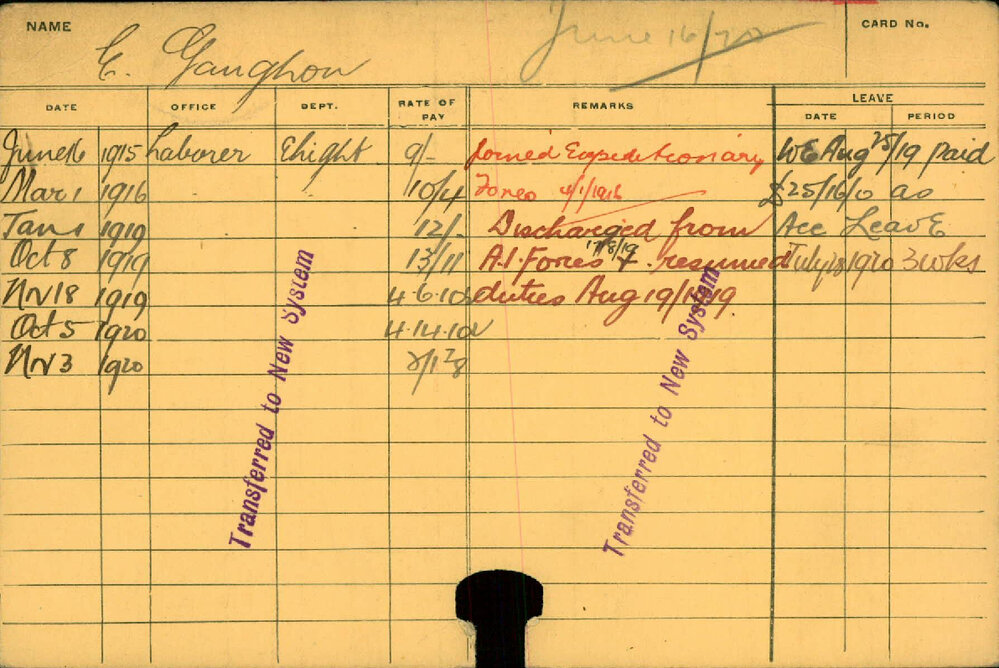 NAME
C. Gaughon
June 16/20
CARD No.
DATE OFFICE DEPT. RATE OF PAY REMARKS LEAVE
DATE PERIOD
June 16 1915 Laborer Elight 9/- Joined Expeditionary WE Aug 25/19 paid
Mar 1 1916 10/4 Forces 4/1/1916 £25/16/0 as
Jan 1 1919 12/- Discharged from Acc Leave
Oct 8 1919 13/11 A.I Forces 17/8/19 + resumed July 1920 3 wks
Nov 18 1919 4.6.10 duties Aug 19/1919
Oct 5 1920 4.14.10
Nov 3 1920
Transferred to New System
Transferred to New System